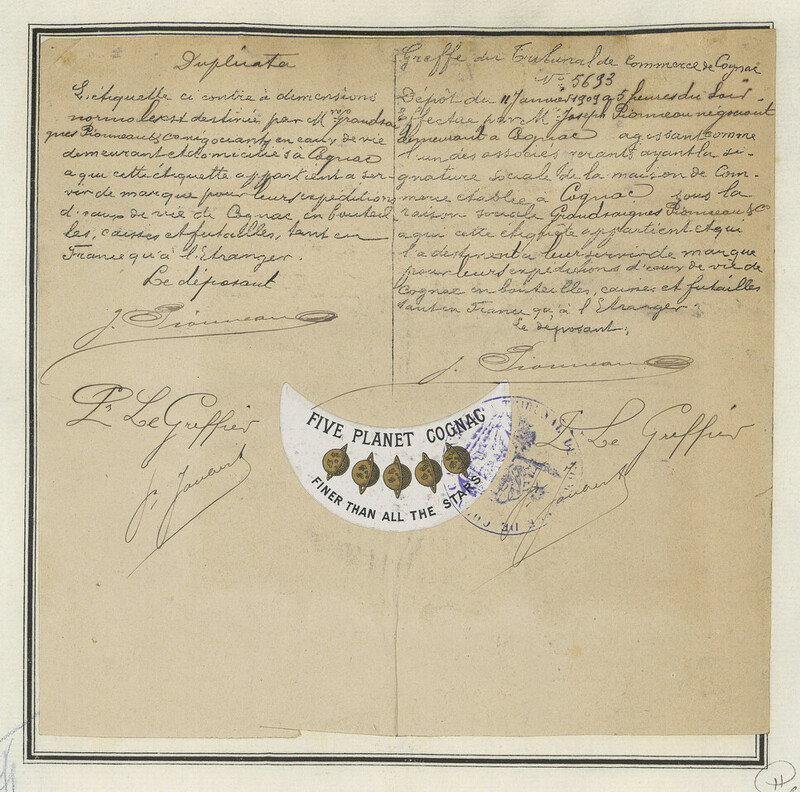 Duplicata
L'étiquette ci contre à dimensions
normales est destinée par MM. Grandsai
gnes Pionneau & Co négociants en eaux de vie
demeurant et domiciliés à Cognac
a qui cette étiquette appartient a ser-
vir de marque pour leurs expéditions
d'eaux de vie de Cognac, en bouteil
les, caisses et futailles, tant en
France qu'à l'Etranger.
Le déposant
J. Pionneau
Pr Le Greffier
Greffe du Tribunal de Commerce de Cognac
No 5693
Dépôt du 11 Janvier 1909 à 5 heures du Soir
Effectué par M. Joseph Pionneau négociant
demeurant a Cognac agissant comme
l'un des associés gérants ayant la si-
gnature sociale de la maison de Com-
merce établie à Cognac sous la
raison sociale Grandsaignes Pionneau & Co
a qui cette étiquette appartient et qui
la destinent à leur servir de marque
pour leurs expéditions d'eaux de vie de
Cognac en bouteilles, caisses et futailles
tant en France qu'à l'Etranger
Le déposant,
J. Pionneau
Pr Le Greffier
FIVE PLANET COGNAC
FINER THAN ALL THE STARS